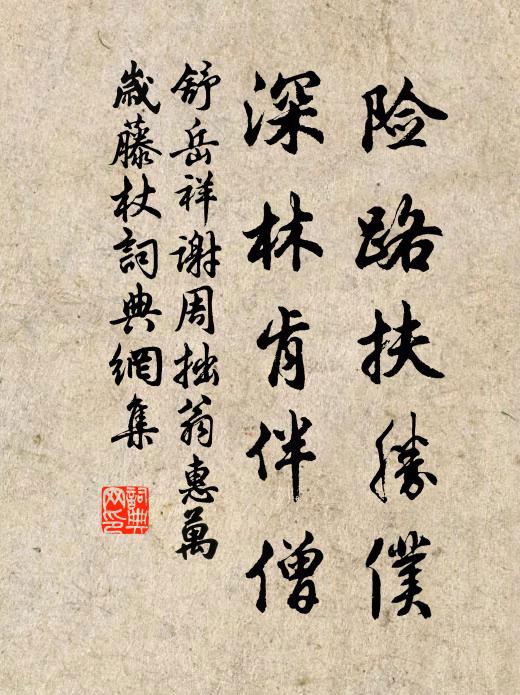 险路扶勝僕
深林肯伴僧
舒岳祥謝周拙翁惠萬
歲藤杖詞典網集
詞典网印